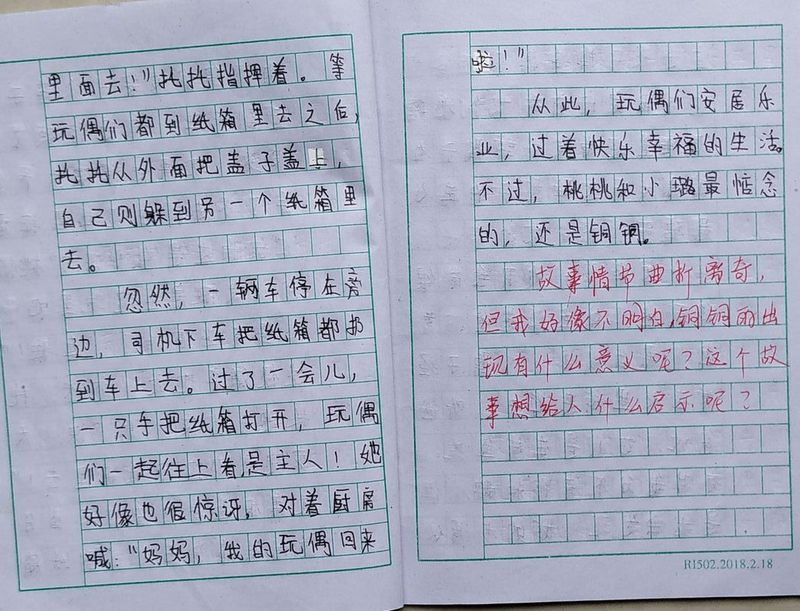 里面去！”托托指挥着。等
玩偶们都到纸箱里去之后，
托托从外面把盖子盖上，
自己则躲到另一个纸箱里
去。
忽然，一辆车停在旁
边，司机下车把纸箱都抄
到车上去。过了一会儿，
一只手把纸箱打开，玩偶
们一起往上看是主人！她
好像也很惊讶，对着厨房
喊：“妈妈，我的玩偶回来
啦！”
从此，玩偶们安居乐
业，过着快乐幸福的生活。
不过，桃桃和小璐最惦念
的，还是铜铜。
故事情节曲折离奇，
但我好像不明白，铜铜的出
现有什么意义呢？这个故
事想给人什么启示呢？
R1502.2018.2.18